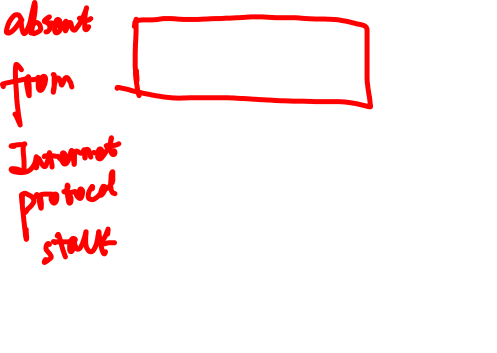 absent
from
Internet
protocal
stalk